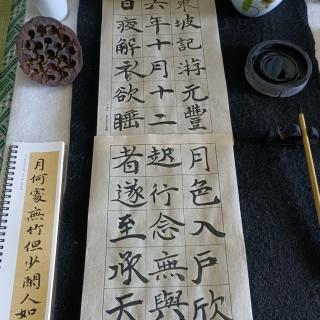 東坡記游元豐
六年十月十二
日夜解衣欲睡
月色入戶欣
起行念無與
者遂至承天
月何處無竹但少閑人如